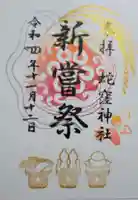 奉拝
蛇窪神社
新嘗祭
令和四年十一月十二日